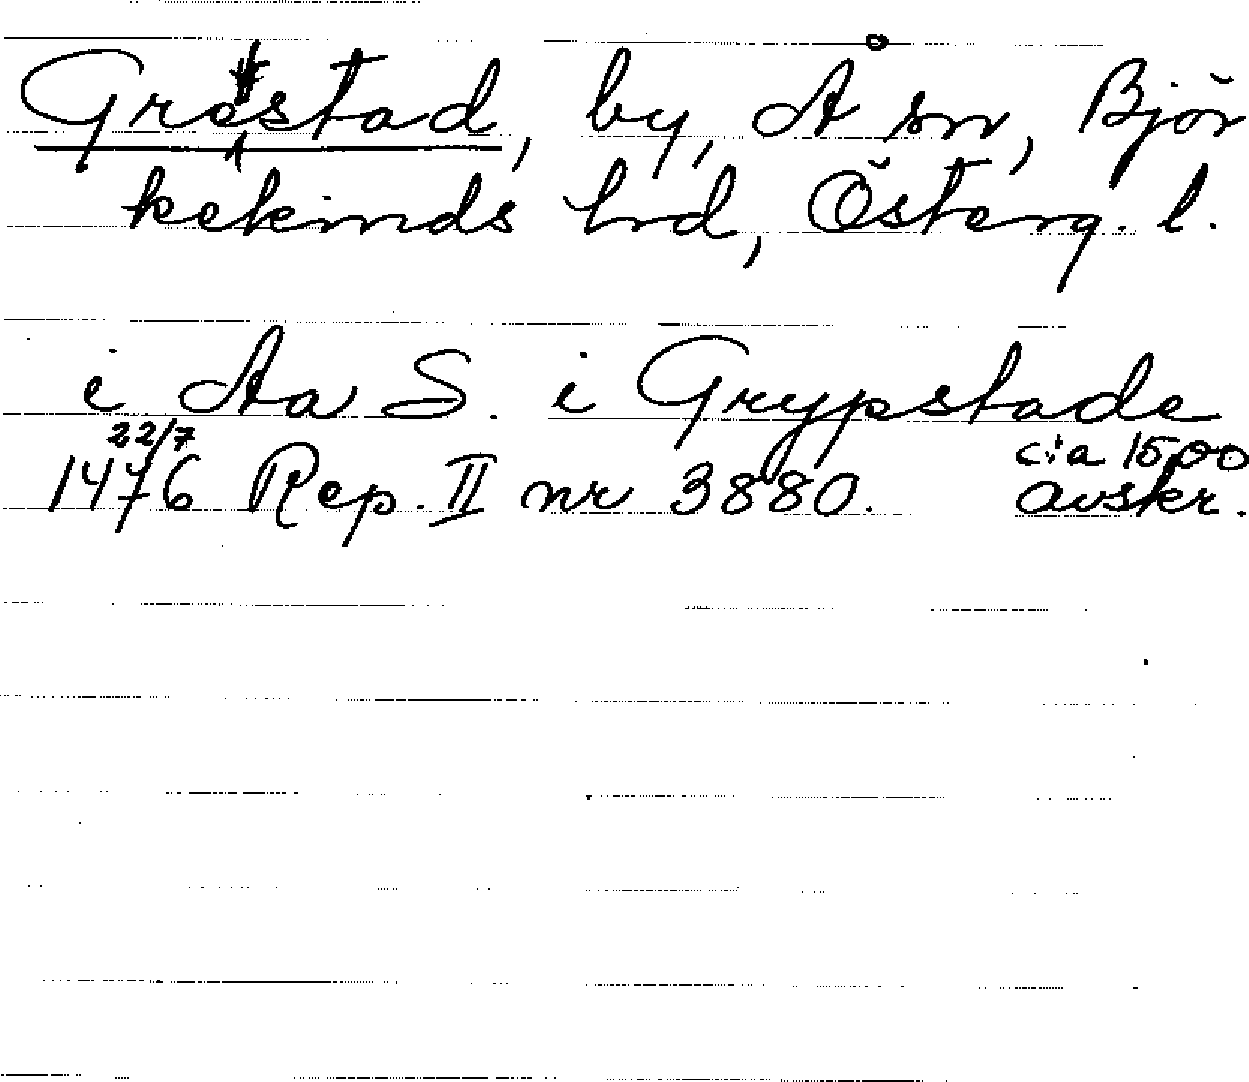 Gröstad, by, Å sn, Björ
kekinds hrd, Österg. l.
i Aa S. i Grypstade
22/7 c:a 1500
1476 Rep. II nr 3880. avskr.